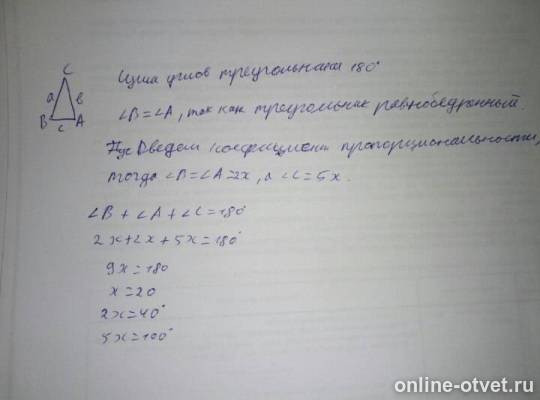 C
a в
B A
c
Сума углов треугольника 180°
∠B=∠A, так как треугольник равнобедренный.
введем коэффициент пропорциональности,
тогда ∠B=∠A=2x, а ∠C=5x.
∠B+∠A+∠C=180°
2x+2x+5x=180°
9x=180
x=20
2x=40°
5x=100°
online-otvet.ru